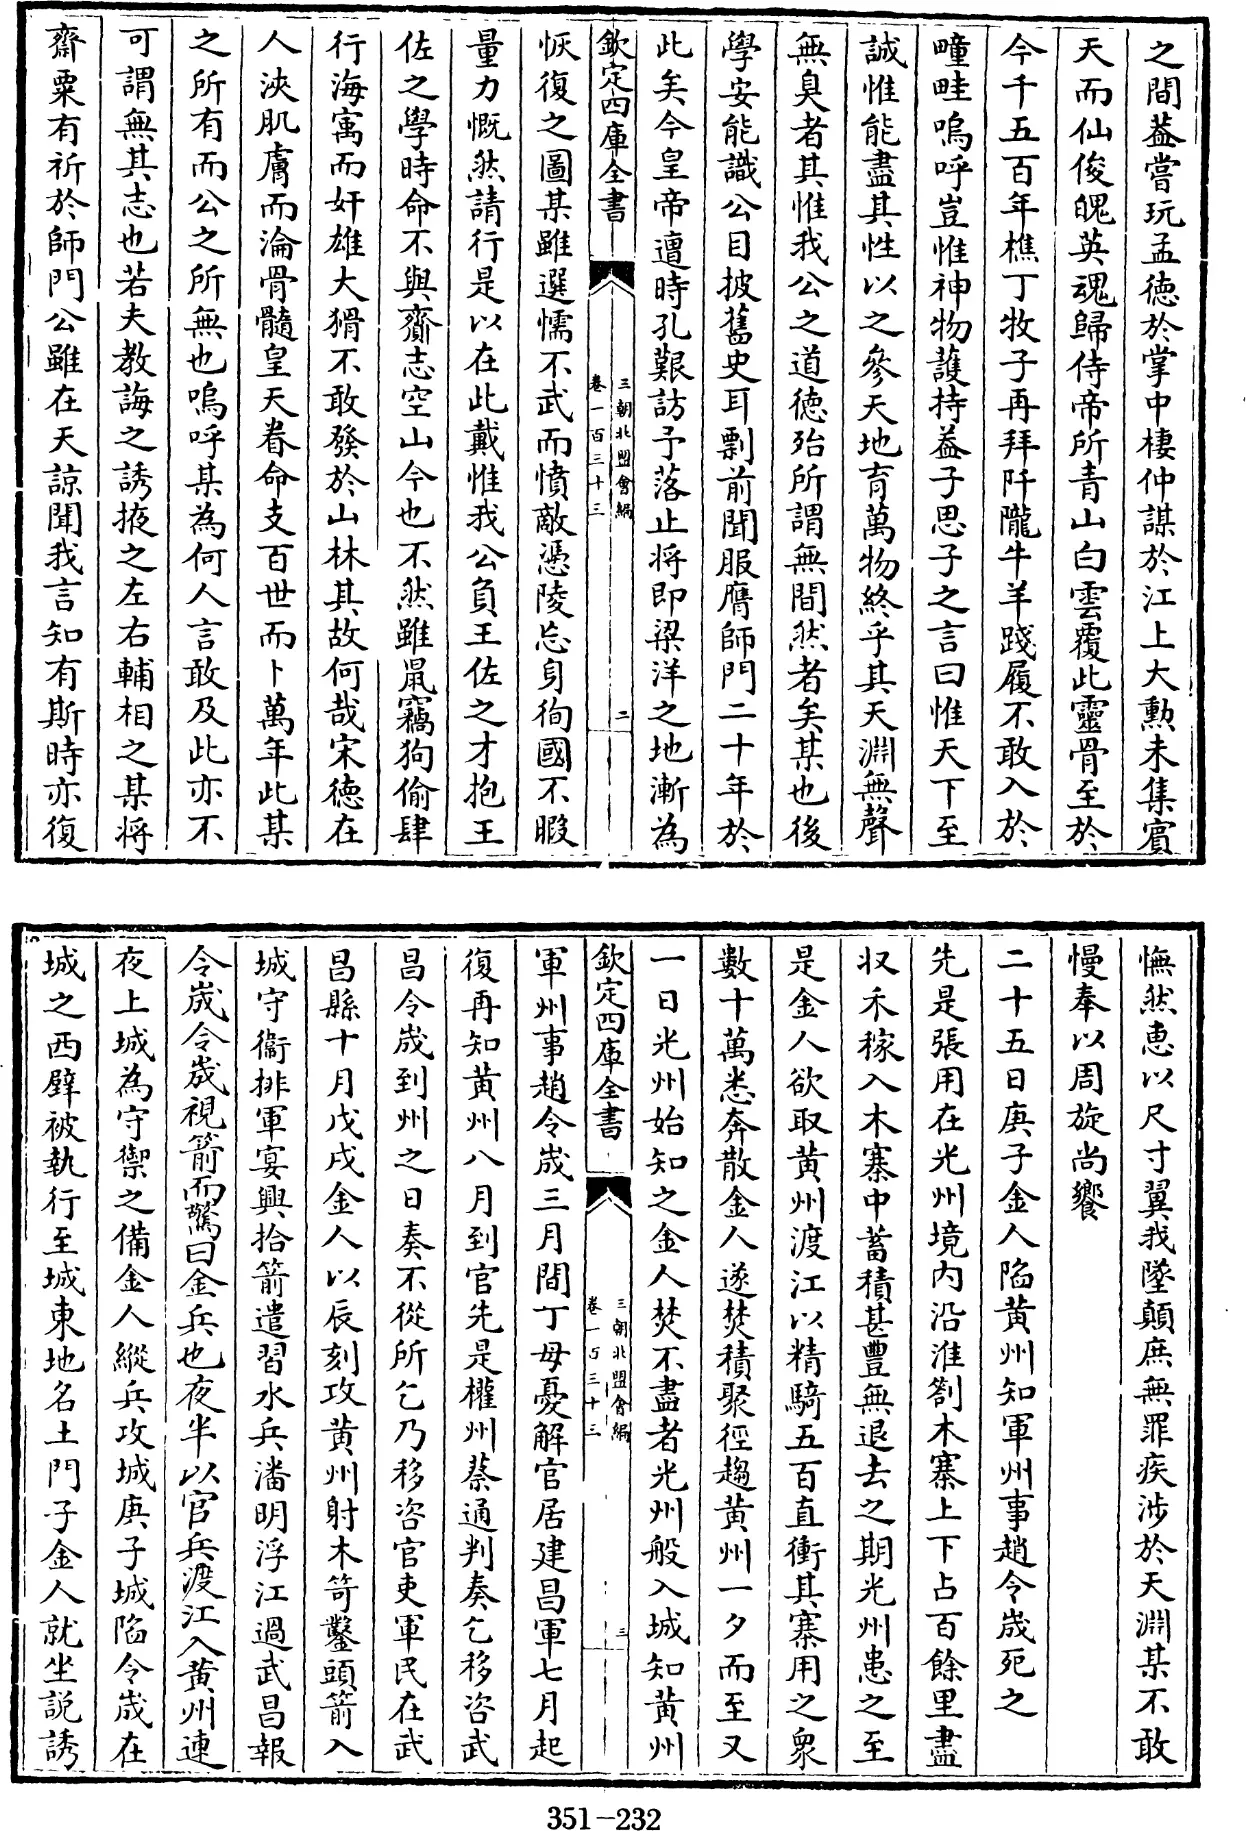 之間葢嘗玩孟徳於掌中棲仲謀於江上大勲未集賔
天而仙俊魄英魂歸侍帝所青山白雲覆此靈骨至於
今千五百年樵丁牧子再拜阡隴牛羊踐履不敢入於
疃畦嗚呼豈惟神物護持葢子思子之言曰惟天下至
誠惟能盡其性以之參天地育萬物終乎其天淵無聲
無臭者其惟我公之道徳殆所謂無間然者矣某也後
學安能識公目披舊史耳剽前聞服膺師門二十年於
此矣今皇帝遭時孔艱訪予落止將即梁洋之地漸為
欽定四庫全書
三朝北盟會編
卷一百三十三
二
恢復之圖某雖選懦不武而憤敵憑陵忘身徇國不暇
量力慨然請行是以在此戴惟我公負王佐之才抱王
佐之學時命不與齎志空山今也不然雖鼠竊狗偷肆
行海寓而奸雄大猾不敢發於山林其故何哉宋徳在
人浹肌膚而淪骨髓皇天眷命支百世而卜萬年此某
之所有而公之所無也嗚呼某為何人言敢及此亦不
可謂無其志也若夫教誨之誘掖之左右輔相之某將
齋粟有祈於師門公雖在天諒聞我言知有斯時亦復
憮然恵以尺寸翼我墜顛庶無罪疾渉於天淵某不敢
慢奉以周旋尚饗
二十五日庚子金人陷黄州知軍州事趙令歲死之
先是張用在光州境内沿淮劄木寨上下占百餘里盡
収禾稼入木寨中蓄積甚豐無退去之期光州患之至
是金人欲取黄州渡江以精騎五百直衝其寨用之衆
數十萬悉奔散金人遂焚積聚徑趨黄州一夕而至又
一日光州始知之金人焚不盡者光州般入城知黄州
欽定四庫全書
三朝北盟會編
卷一百三十三
三
軍州事趙令歲三月間丁母憂解官居建昌軍七月起
復再知黄州八月到官先是權州蔡通判奏乞移咨武
昌令歲到州之日奏不從所乞乃移咨官吏軍民在武
昌縣十月戊戌金人以辰刻攻黄州射木笴鑿頭箭入
城守衙排軍宴興拾箭遣習水兵潘明浮江過武昌報
令歲令歲視箭而驚曰金兵也夜半以官兵渡江入黄州連
夜上城為守禦之備金人縱兵攻城庚子城陷令歲在
城之西壁被執行至城東地名土門子金人就坐説誘
351-232